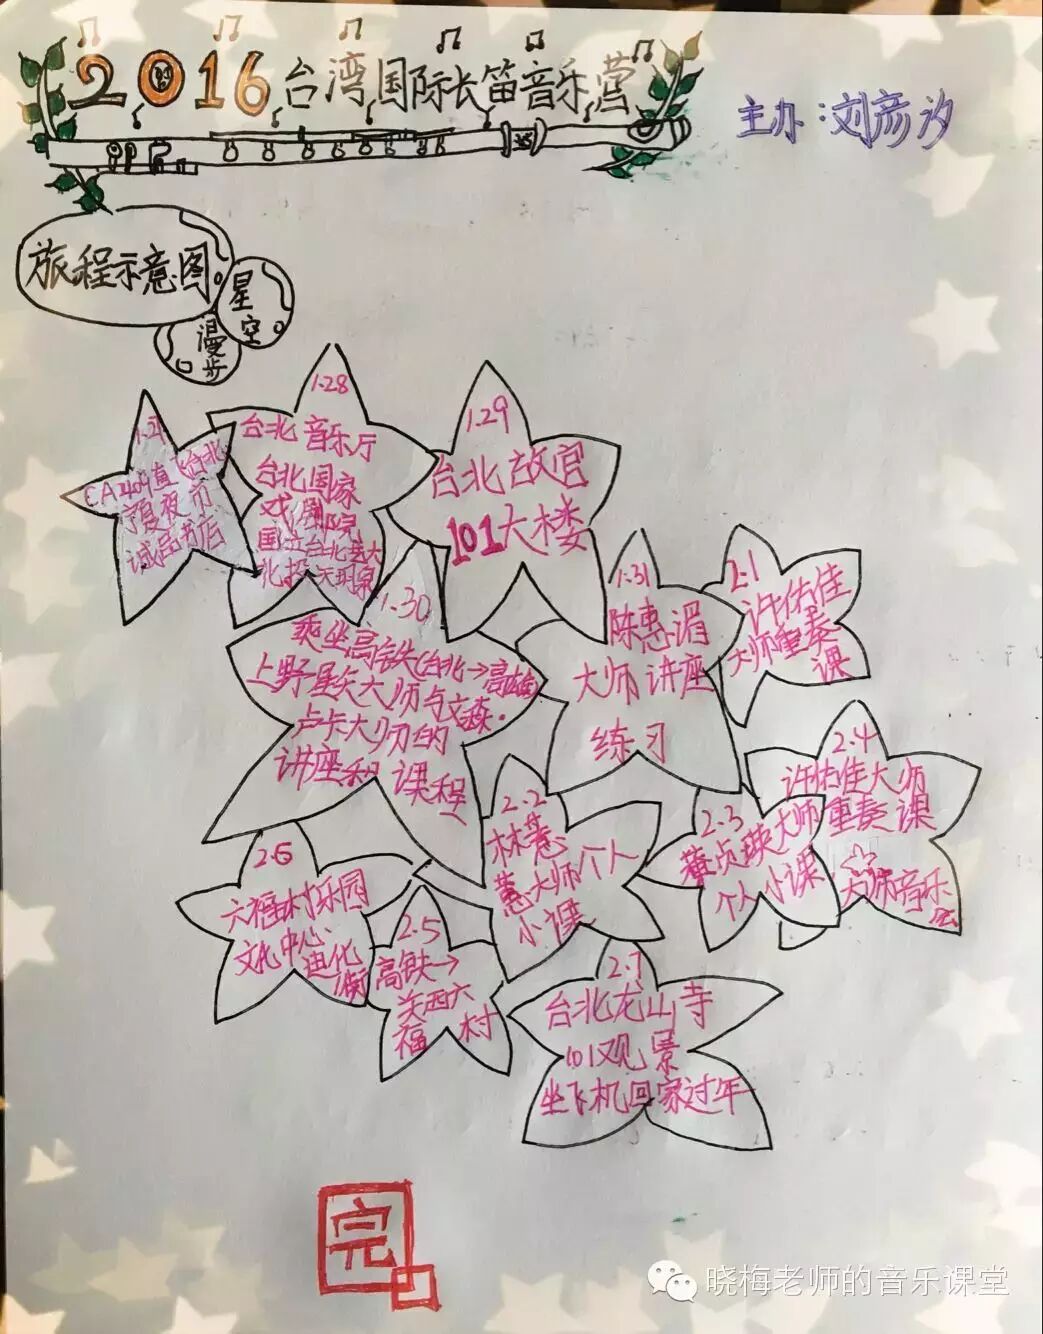 2016台湾国际长笛音乐营
主办:刘彦汐
旅程示意图
星空
漫步
1.28
台北音乐厅
台北国家
戏剧院
国立台北
1.29
台北故宫
101大楼
诚品书店
1.30
乘坐高铁(台北→高雄)
上野星矢大师与文森·
卢卡大师的
讲座和课程
1.31
陈惠湄
大师讲座
练习
2.1
许佑佳
大师重奏
课
2.2
林慧
蕙大师个人
小课
2.3
董贞瑛大师
个人小课
2.4
许佑佳大师
重奏课
大师音乐
2.5
高铁→
关西六
福村
2.6
六福村乐园
文化中心
迪化街
2.7
台北龙山寺
101观景
坐飞机回家过年
完
晓梅老师的音乐课堂